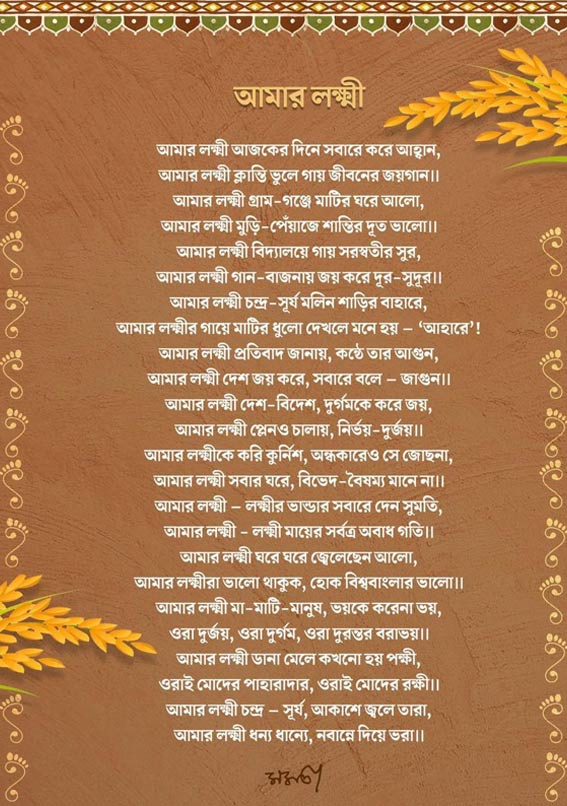 আমার লক্ষ্মী
আমার লক্ষ্মী আজকের দিনে সবারে করে আহ্বান,
আমার লক্ষ্মী ক্লান্তি ভুলে গায় জীবনের জয়গান।।
আমার লক্ষ্মী গ্রাম-গঞ্জে মাটির ঘরে আলো,
আমার লক্ষ্মী মুড়ি-পেঁয়াজে শান্তির দূত ভালো।।
আমার লক্ষ্মী বিদ্যালয়ে গায় সরস্বতীর সুর,
আমার লক্ষ্মী গান-বাজনায় জয় করে দূর-সুদূর।।
আমার লক্ষ্মী চন্দ্র-সূর্য মলিন শাড়ির বাহারে,
আমার লক্ষ্মীর গায়ে মাটির ধুলো দেখলে মনে হয় – ‘আহারে’!
আমার লক্ষ্মী প্রতিবাদ জানায়, কন্ঠে তার আগুন,
আমার লক্ষ্মী দেশ জয় করে, সবারে বলে – জাগুন।।
আমার লক্ষ্মী দেশ-বিদেশ, দুর্গমকে করে জয়,
আমার লক্ষ্মী প্লেনও চালায়, নির্ভয়-দুর্জয়।।
আমার লক্ষ্মীকে করি কুর্নিশ, অন্ধকারেও সে জোছনা,
আমার লক্ষ্মী সবার ঘরে, বিভেদ-বৈষম্য মানে না।।
আমার লক্ষ্মী – লক্ষ্মীর ভান্ডার সবারে দেন সুমতি,
আমার লক্ষ্মী - লক্ষ্মী মায়ের সর্বত্র অবাধ গতি।।
আমার লক্ষ্মী ঘরে ঘরে জ্বেলেছেন আলো,
আমার লক্ষ্মীরা ভালো থাকুক, হোক বিশ্ববাংলার ভালো।।
আমার লক্ষ্মী মা-মাটি-মানুষ, ভয়কে করেনা ভয়,
ওরা দুর্জয়, ওরা দুর্গম, ওরা দুরন্তর বরাভয়।।
আমার লক্ষ্মী ডানা মেলে কখনো হয় পক্ষী,
ওরাই মোদের পাহারাদার, ওরাই মোদের রক্ষী।।
আমার লক্ষ্মী চন্দ্র – সূর্য, আকাশে জ্বলে তারা,
আমার লক্ষ্মী ধন্য ধান্যে, নবান্নে দিয়ে ভরা।।
মমতা